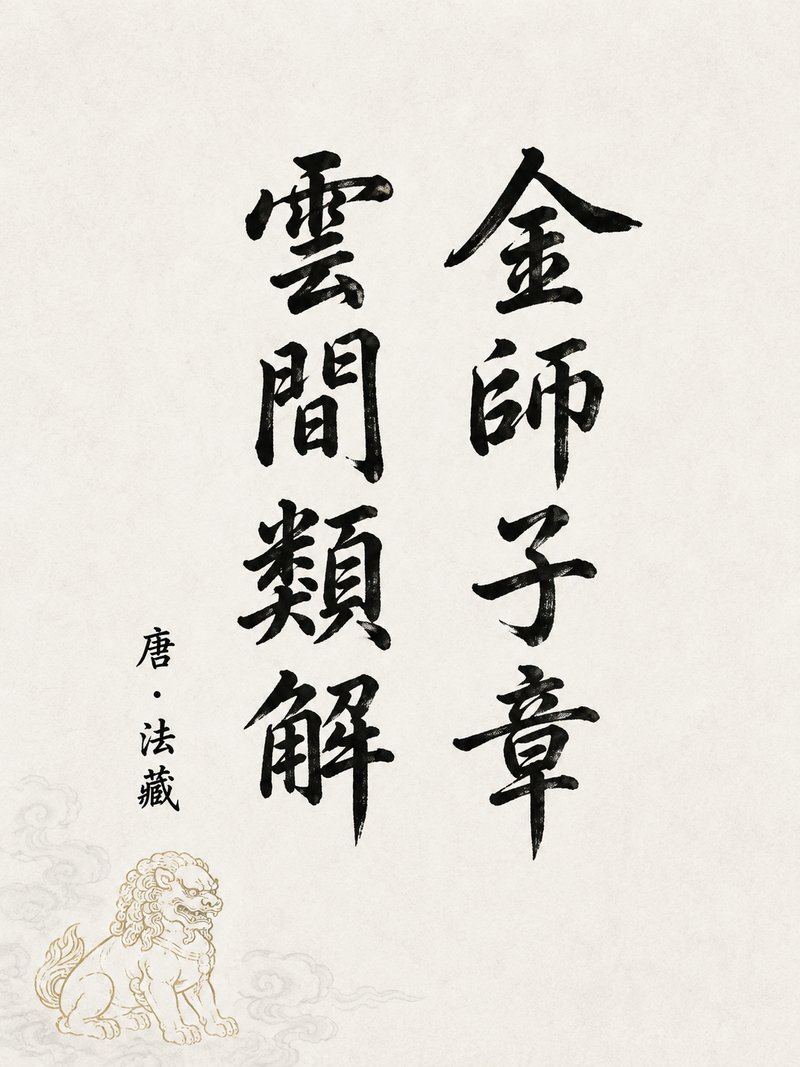 金師子章
雲間類解
唐·法藏